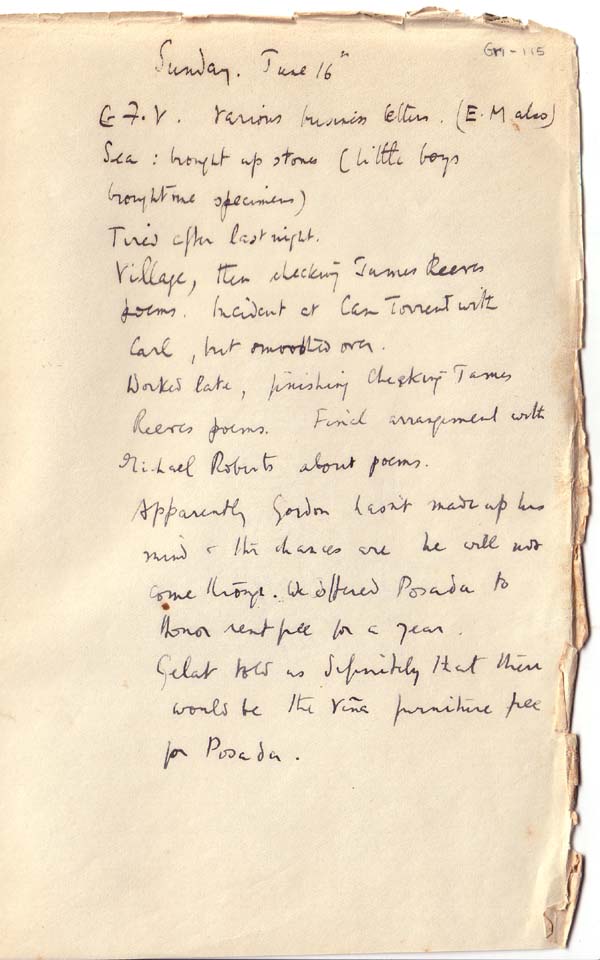 GM-115
Sunday. June 16th
G.F.V. Various business letters. (E.M also)
Sea: brought up stones (little boys
brought me specimens)
Tired after last night.
Village, then checking James Reeves
poems. Incident at Can Torrent with
Carl, but smoothed over.
Worked late, finishing checking James
Reeves poems. Final arrangement with
Michael Roberts about poems.
Apparently Gordon hasn't made up his
mind & the chances are he will not
come through. We offered Posada to
Honor rent free for a year.
Gelat told us definitely that there
would be the Viña furniture free
for Posada.